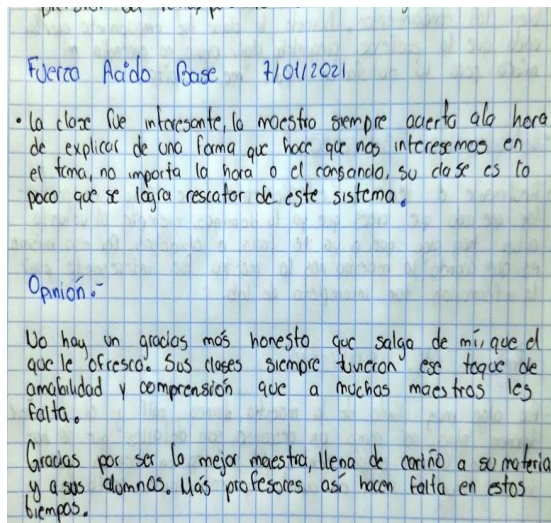 Fuerza Acido Base 7/01/2021
• La clase fue interesante, la maestra siempre acierta ala hora
de explicar de una forma que hace que nos interesemos en
el tema, no importa la hora o el cansancio, su clase es lo
poco que se logra rescatar de este sistema.
Opinión.-
No hay un gracias más honesto que salga de mí, que el
que le ofresco. Sus clases siempre tuvieron ese toque de
amabilidad y comprensión que a muchos maestros les
falta.
Gracias por ser la mejor maestra, llena de cariño a su materia
y a sus alumnos. Más profesores así hacen falta en estos
tiempos.